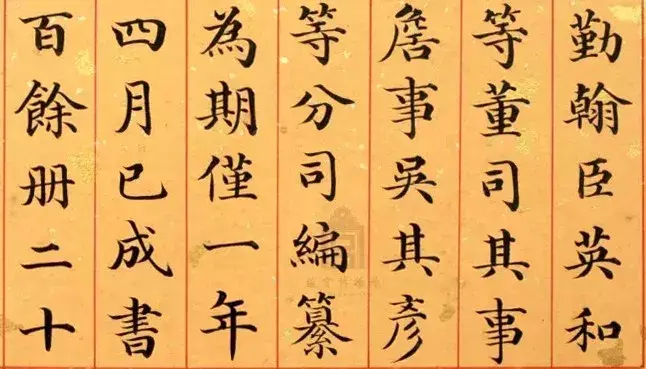 勤翰臣英和
等董司其事
詹事吳其彥
等分司編纂
為期僅一年
四月已成書
百餘册二十